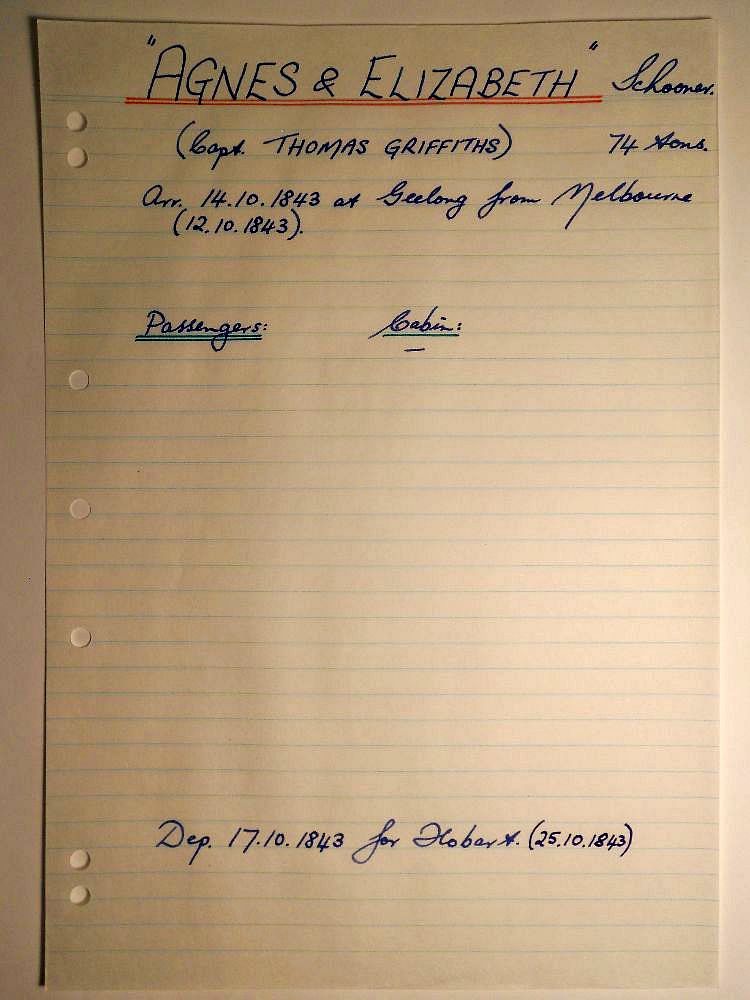 "AGNES & ELIZABETH" Schooner.
(Capt. THOMAS GRIFFITHS) 74 tons.
Arr. 14.10.1843 at Geelong from Melbourne
(12.10.1843).
Passengers: Cabin:
—
Dep. 17.10.1843 for Hobart. (25.10.1843)